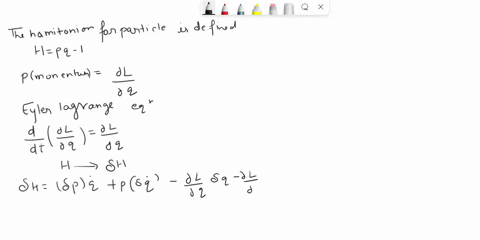 The hamitonian for particle is defined
H = pq - 1
P(momentus) = ∂L/∂q
Eyler lagrange eqⁿ
d/dt (∂L/∂q) = ∂L/∂q
H → δH
δH = (δp)q̇ + p(δq̇) - ∂L/∂q δq - ∂L/∂